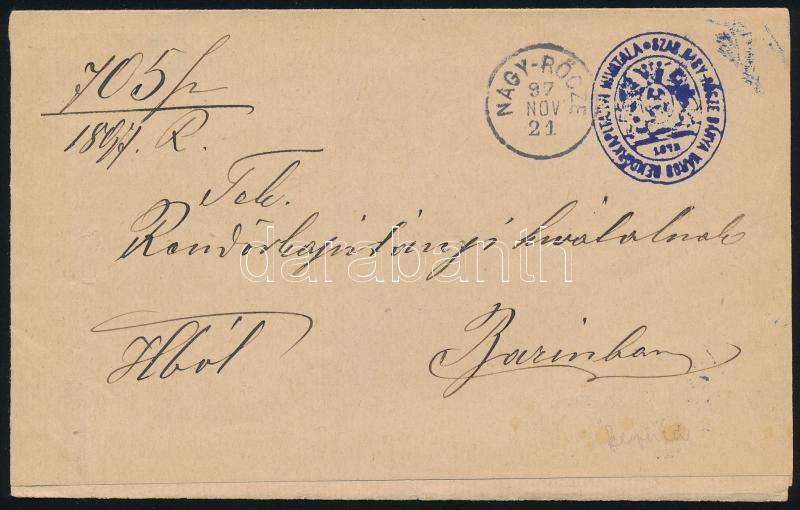 705/
1897. R.
NAGY-RŐCZE
97
NOV
21
SZAB. NAGY-RŐCZE BÁNYA VÁROS RENDŐRKAPITÁNYI HIVATALA
1873
Tek.
Rendőrkapitányi hivatalnak
Hból
darabanth